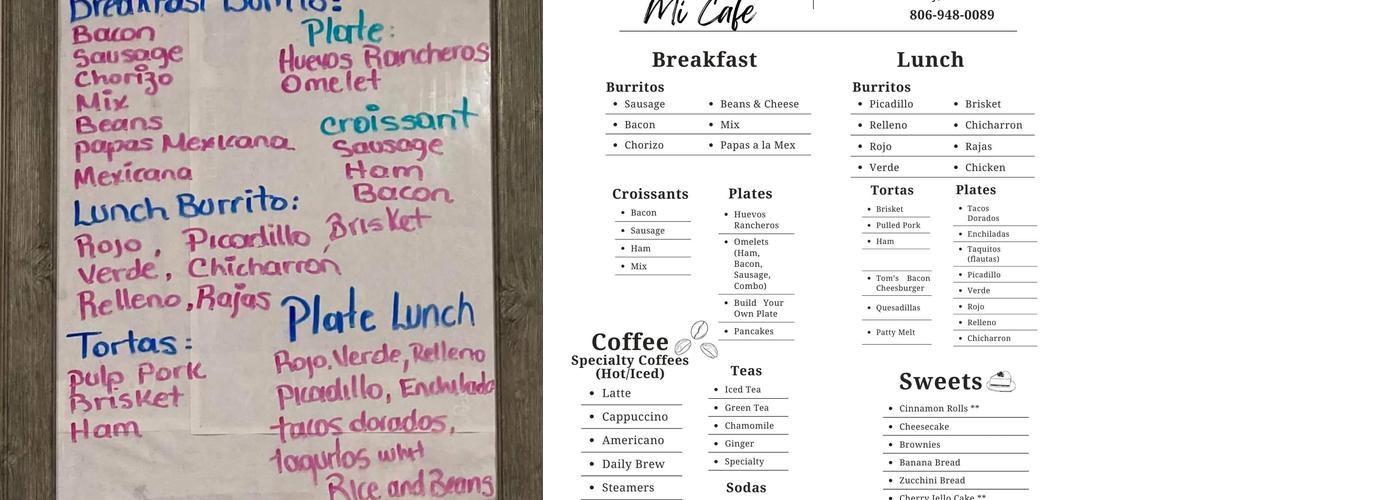 Breakfast Burrito:
Bacon
Sausage
Chorizo
Mix
Beans
papas Mexicana
Mexicana
Plate:
Huevos Rancheros
Omelet
croissant
Sausage
Ham
Bacon
Lunch Burrito:
Rojo, Picadillo, Brisket
Verde, Chicharron
Relleno, Rajas
Tortas:
pulp Pork
Brisket
Ham
Plate Lunch
Rojo, Verde, Relleno
Picadillo, Enchilada
tacos dorados,
taquitos
Rice and Beans
Mi Cafe
806-948-0089
Breakfast
Burritos
• Sausage
• Bacon
• Chorizo
• Beans & Cheese
• Mix
• Papas a la Mex
Croissants
• Bacon
• Sausage
• Ham
• Mix
Plates
• Huevos
Rancheros
• Omelets
(Ham,
Bacon,
Sausage,
Combo)
• Build Your
Own Plate
• Pancakes
Lunch
Burritos
• Picadillo
• Relleno
• Rojo
• Verde
• Brisket
• Chicharron
• Rajas
• Chicken
Tortas
• Brisket
• Pulled Pork
• Ham
• Tom's Bacon
Cheesburger
• Quesadillas
• Patty Melt
Plates
• Tacos
Dorados
• Enchiladas
• Taquitos
(flautas)
• Picadillo
• Verde
• Rojo
• Relleno
• Chicharron
Coffee
Specialty Coffees
(Hot/Iced)
• Latte
• Cappuccino
• Americano
• Daily Brew
• Steamers
Teas
• Iced Tea
• Green Tea
• Chamomile
• Ginger
• Specialty
Sodas
Sweets
• Cinnamon Rolls **
• Cheesecake
• Brownies
• Banana Bread
• Zucchini Bread
• Cherry Jello Cake **